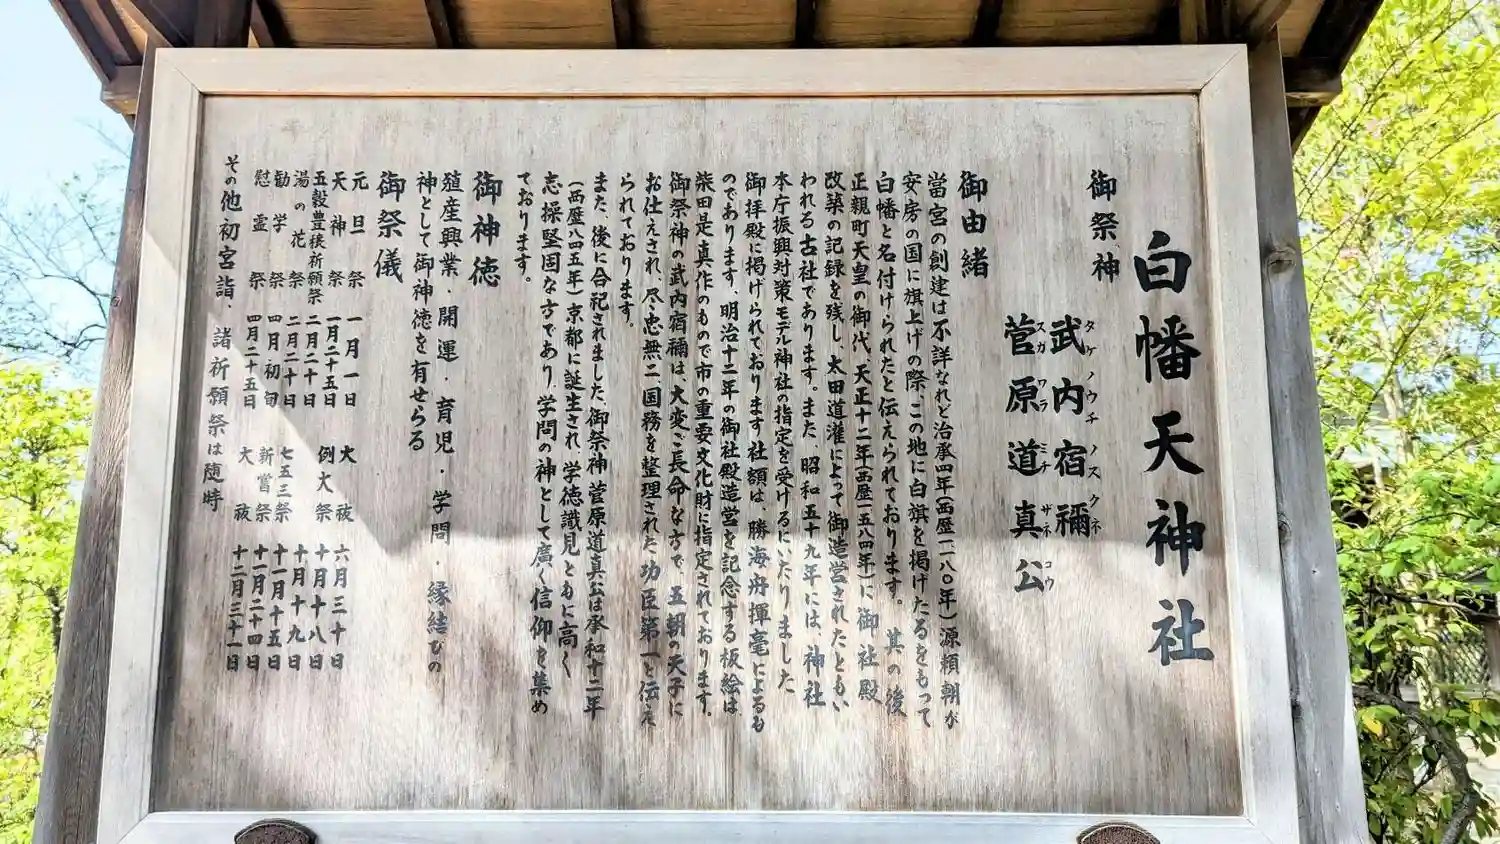 白幡天神社
御祭神
武内宿禰
タケノウチノスクネ
菅原道真公
スガワラミチザネコウ
御由緒
當宮の創建は不詳なれど治承四年(西歴一一八〇年)源頼朝が
安房の国に旗上げの際、この地に白旗を掲げたるをもって
白幡と名付けられたと伝えられております。其の後
正親町天皇の御代、天正十二年(西歴一五八四年)に御社殿
改築の記録を残し、太田道灌によって御造営されたともい
われる古社であります。また、昭和五十九年には、神社
本庁振興対策モデル神社の指定を受けるにいたりました
御拝殿に掲げられております社額は、勝海舟揮毫によるも
のであります、明治十二年の御社殿造営を記念する板絵は、
柴田是真作のもので市の重要文化財に指定されております。
御祭神の武内宿禰は、大変ご長命な方で、五朝の天子に
お仕えされ、尽忠無二国務を整理された功臣第一と伝え
られております。
また、後に合祀されました、御祭神菅原道真公は承和十二年
(西歴八四五年)京都に誕生され、学徳識見ともに高く
志操堅固な方であり、学問の神として廣く信仰を集め
ております。
御神徳
殖産興業・開運・育児・学問・縁結びの
神として御神徳を有せらる
御祭儀
元旦祭 一月一日 大祓 六月三十日
天神祭 一月二十五日 例大祭 十月十八日
五穀豊穣祈願祭 二月二十日 十月十九日
湯の花祭 二月二十日 七五三祭 十一月十五日
勧学祭 四月初旬 新嘗祭 十一月二十四日
慰霊祭 四月二十五日 大祓 十二月三十一日
その他初宮詣・諸祈願祭は随時